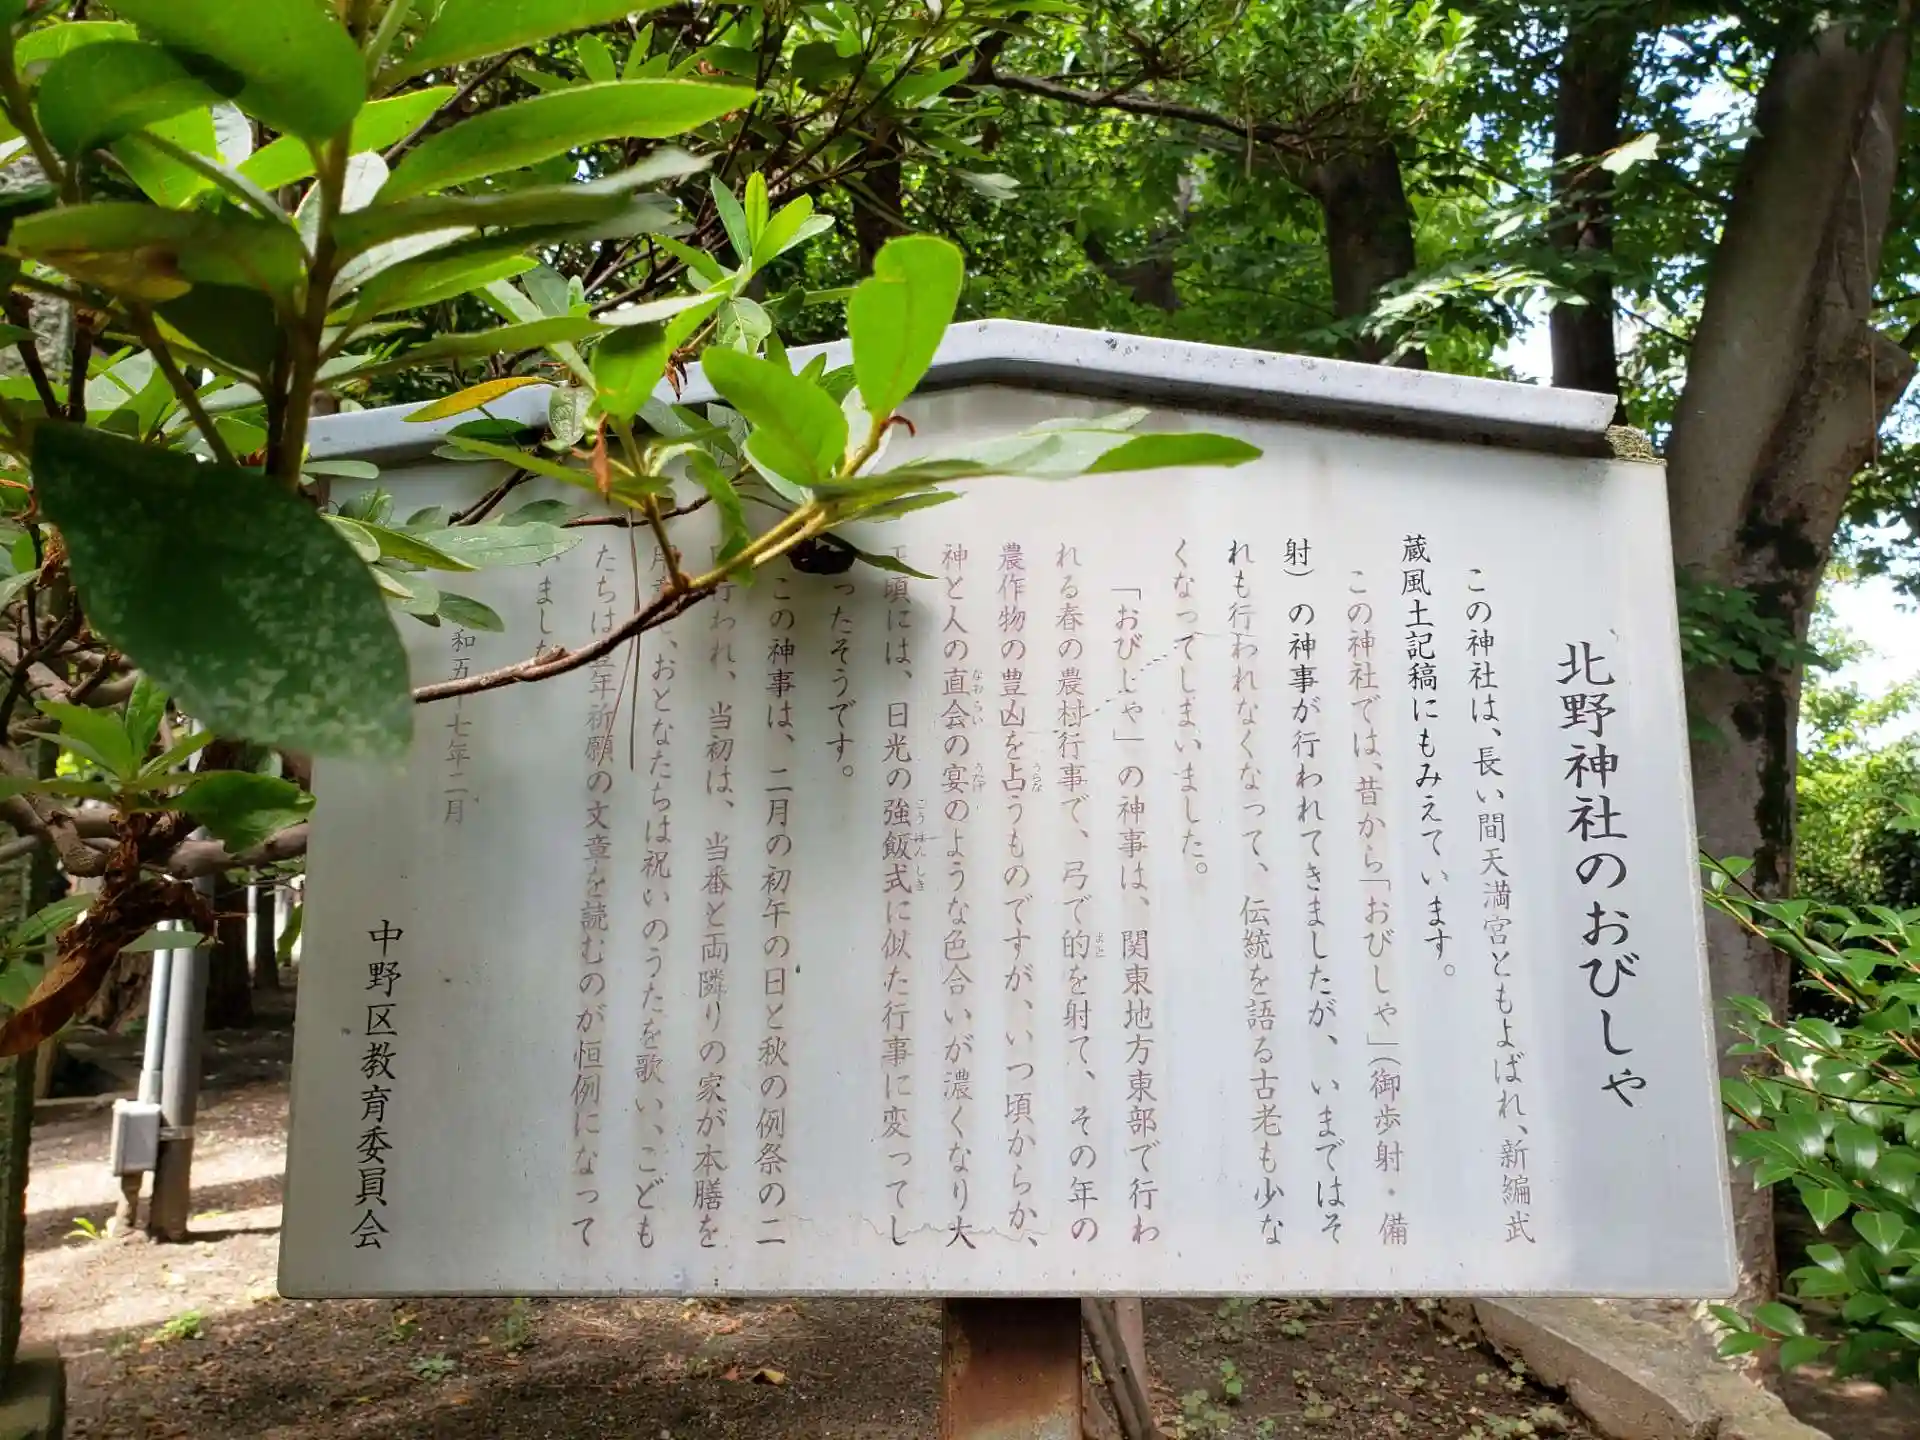 北野神社のおびしゃ
この神社は、長い間天満宮ともよばれ、新編武
蔵風土記稿にもみえています。
この神社では、昔から「おびしゃ」（御歩射・備
射）の神事が行われてきましたが、いまではそ
れも行われなくなって、伝統を語る古老も少な
くなってしまいました。
「おびしゃ」の神事は、関東地方東部で行わ
れる春の農村行事で、弓で的を射て、その年の
農作物の豊凶を占うものですが、いつ頃からか、
神と人の直会の宴のような色合いが濃くなり大
正頃には、日光の強飯式に似た行事に変ってし
ったそうです。
この神事は、二月の初午の日と秋の例祭の二
行われ、当初は、当番と両隣りの家が本膳を
、おとなたちは祝いのうたを歌い、こども
たちは豊年祈願の文章を読むのが恒例になって
いました
和五十七年二月
中野区教育委員会